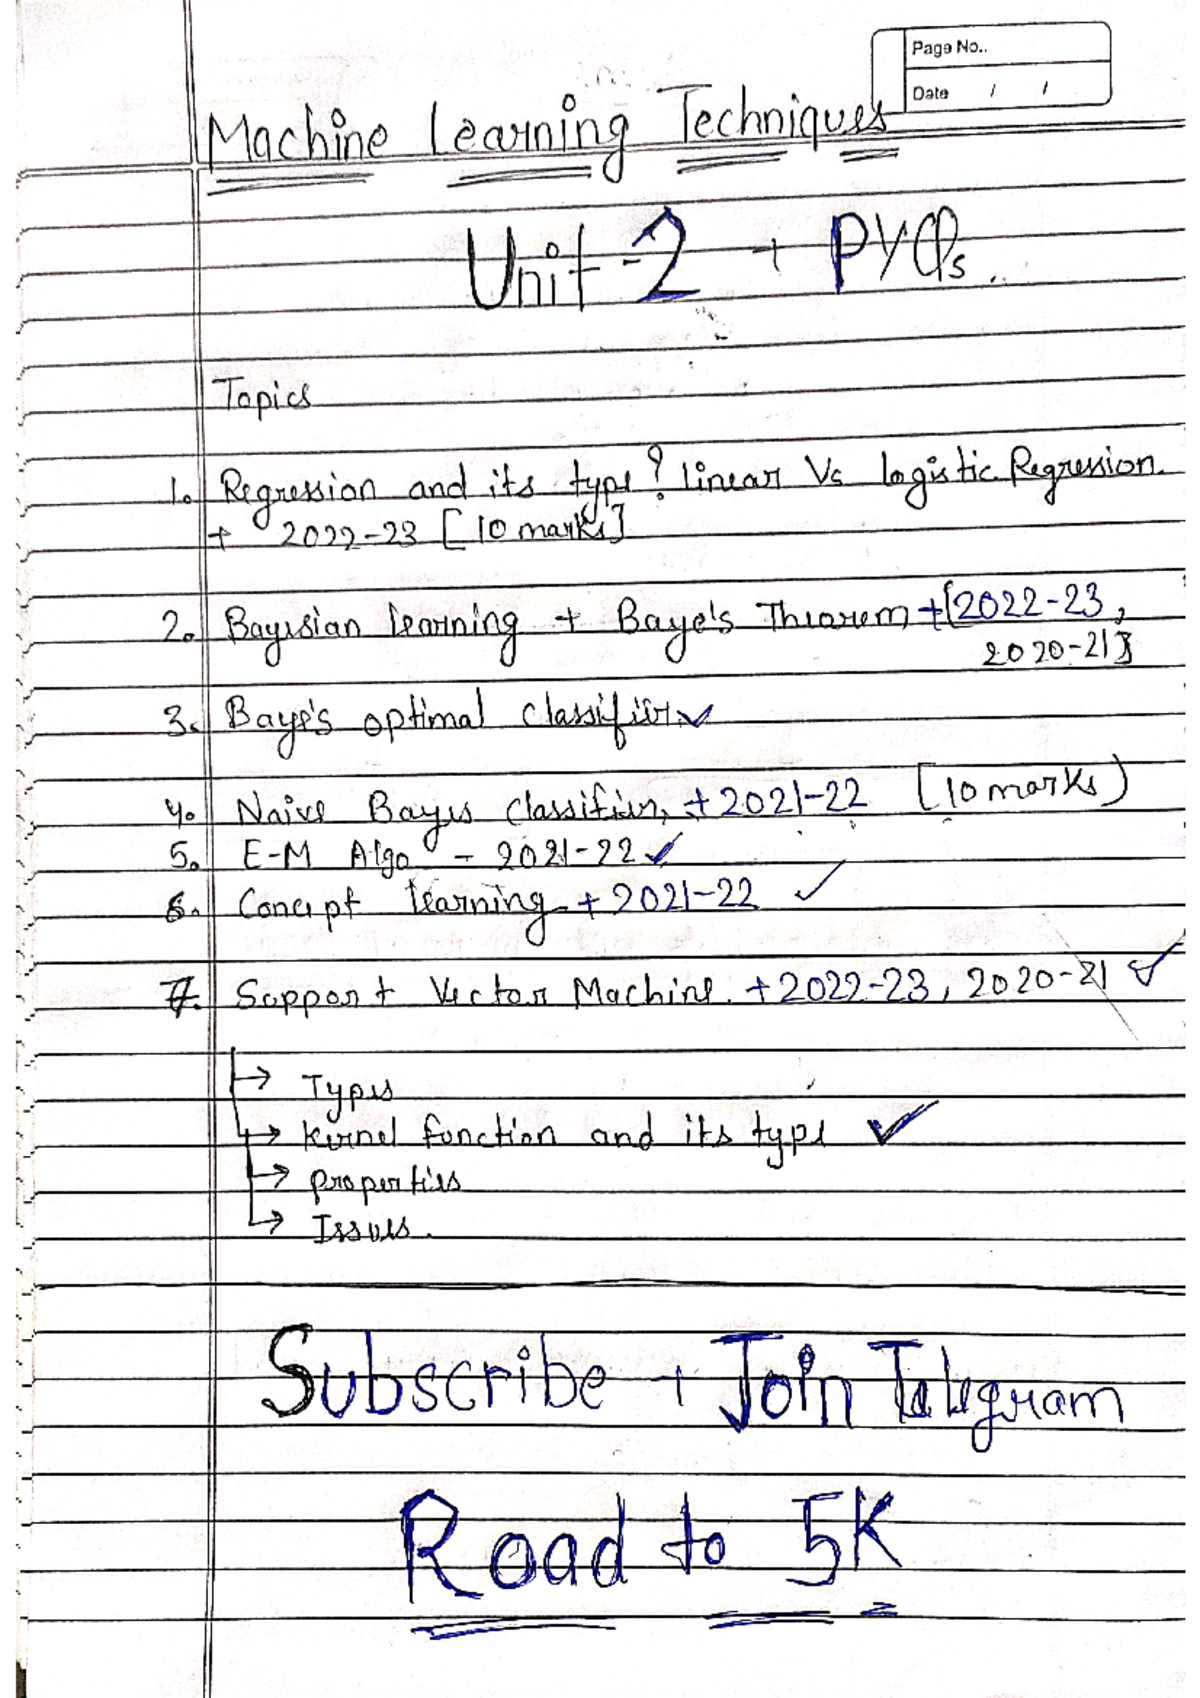 Page No..
Date / /
Machine Learning Techniques
Unit-2 + PYQs.
Topics
1. Regression and its type? linear Vs logistic Regression.
+ 2022-23 [10 marks]
2. Bayesian learning + Baye's Theorem + [2022-23,
2020-21]
3. Baye's optimal classifier ✓
4. Naive Bayes classifier, + 2021-22 [10 marks)
5. E-M Algo - 2021-22 ✓
6. Concept learning + 2021-22 ✓
7. Support Vector Machine. + 2022-23, 2020-21 ✓
→ Types
→ Kernel function and its type ✓
→ properties
→ Issues.
Subscribe + Join Telegram
Road to 5K